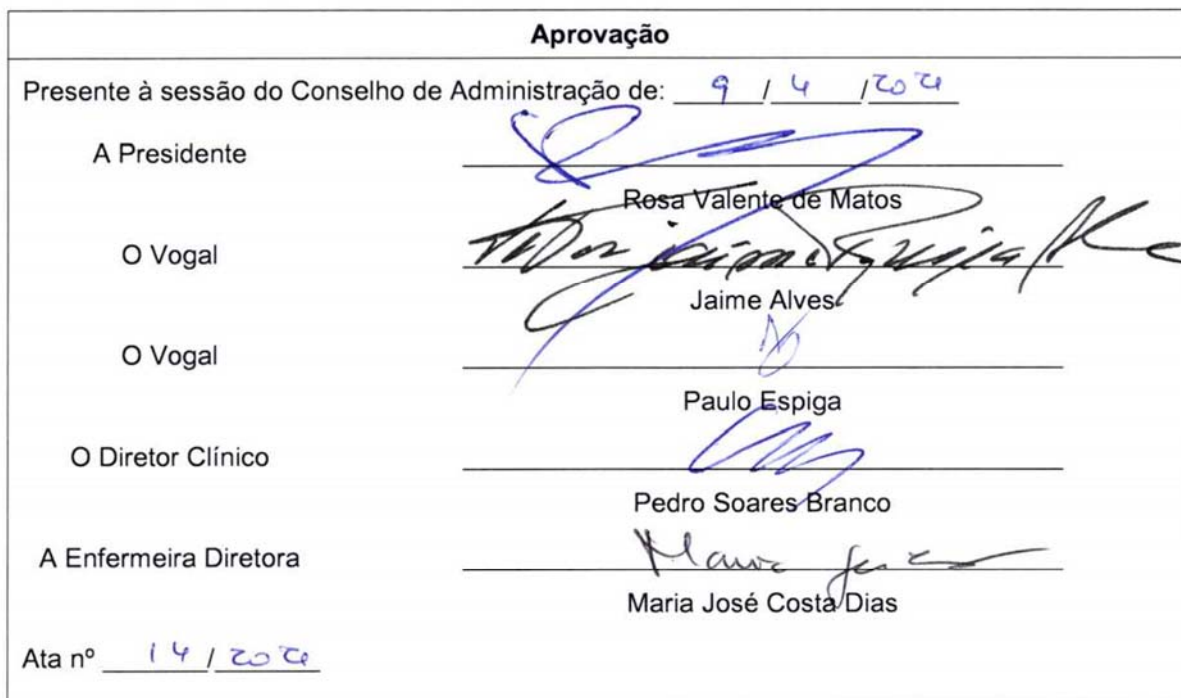 Aprovação
Presente à sessão do Conselho de Administração de: 9 / 4 /
A Presidente
Rosa Valente de Matos
O Vogal
Jaime Alves
O Vogal
Paulo Espiga
O Diretor Clínico
Pedro Soares Branco
A Enfermeira Diretora
Maria José Costa Dias
Ata nº 14 /